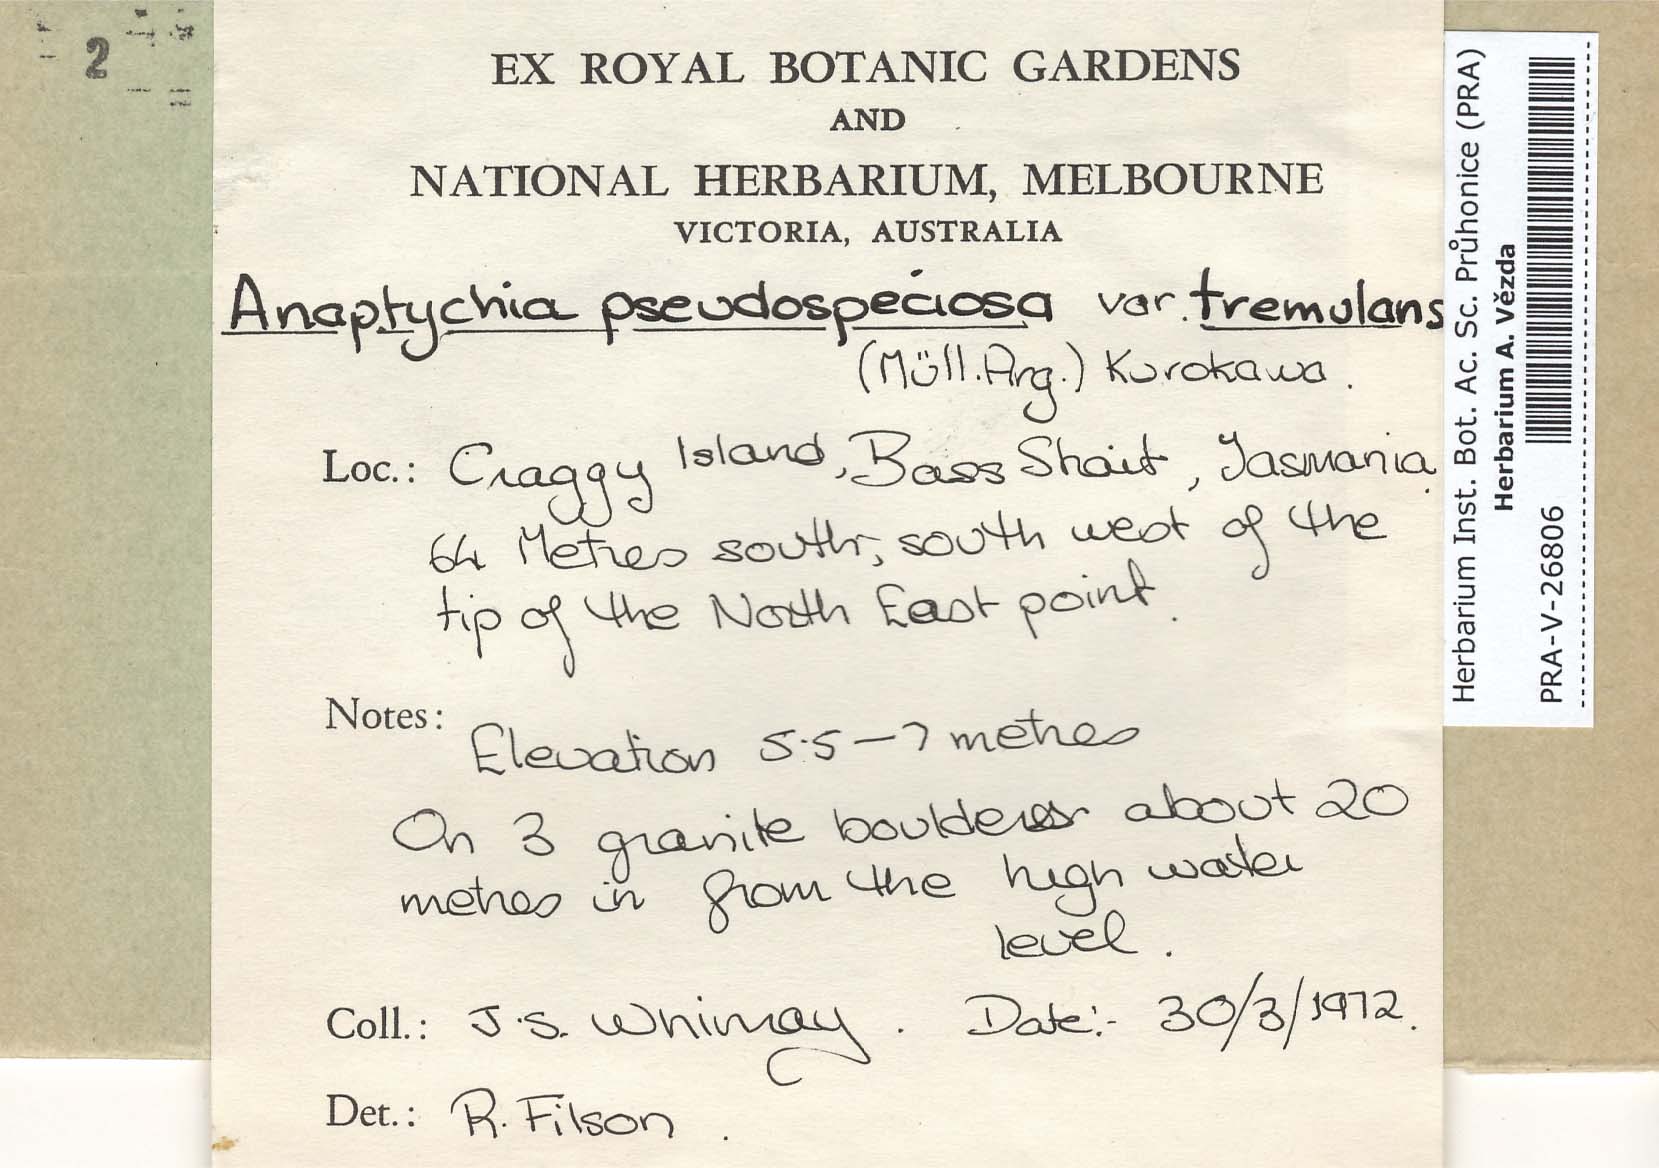 2
EX ROYAL BOTANIC GARDENS
AND
NATIONAL HERBARIUM, MELBOURNE
VICTORIA, AUSTRALIA
Anaptychia pseudospeciosa var. tremulans
(Müll.Arg.) Kurokawa.
Loc.: Craggy Island, Bass Strait, Tasmania.
64 Metres south, south west of the
tip of the North East point.
Notes:
Elevation 5.5 – 7 metres
On 3 granite boulders about 20
metres in from the high water
level.
Coll.: J.S. Whinray. Date:- 30/3/1972.
Det.: R. Filson.
Herbarium Inst. Bot. Ac. Sc. Průhonice (PRA)
Herbarium A. Vězda
PRA-V-26806